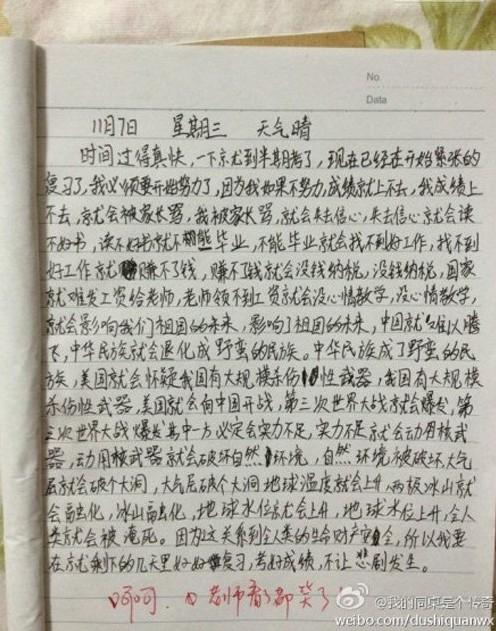 No.
Data
11月7日 星期三 天气晴
时间过得真快，一下就到半期考了，现在已经在开始紧张的
复习了，我必须要开始努力了，因为我如果不努力，成绩就上不去，我成绩上
不去，就会被家长骂，我被家长骂，就会失去信心，失去信心就会读
不好书，读不好书就不能毕业，不能毕业就会找不到好工作，找不到
好工作就赚不了钱，赚不了钱就会没钱纳税，没钱纳税，国家
就难发工资给老师，老师领不到工资就会没心情教学，没心情教学，
就会影响我们祖国的未来，影响了祖国的未来，中国就难以腾
飞，中华民族就会退化成野蛮的民族。中华民族成了野蛮的民
族，美国就会怀疑我国有大规模杀伤性武器，我国有大规模
杀伤性武器，美国就会向中国开战，第三次世界大战就会爆发，第
三次世界大战爆发其中一方必定会实力不足，实力不足就会动用核武
器，动用核武器就会破坏自然环境，自然环境被破坏，大气
层就会破个大洞，大气层破个大洞地球温度就会上升，两极冰山就
会融化，冰山融化，地球水位就会上升，地球水位上升，全人
类就会被淹死。因为这关系到全人类的生命财产安全，所以我要
在就剩下的几天里好好复习，考好成绩，不让悲剧发生。
呵呵，老师看了都笑了！
@我的同桌是个传奇
weibo.com/dushiquanwx